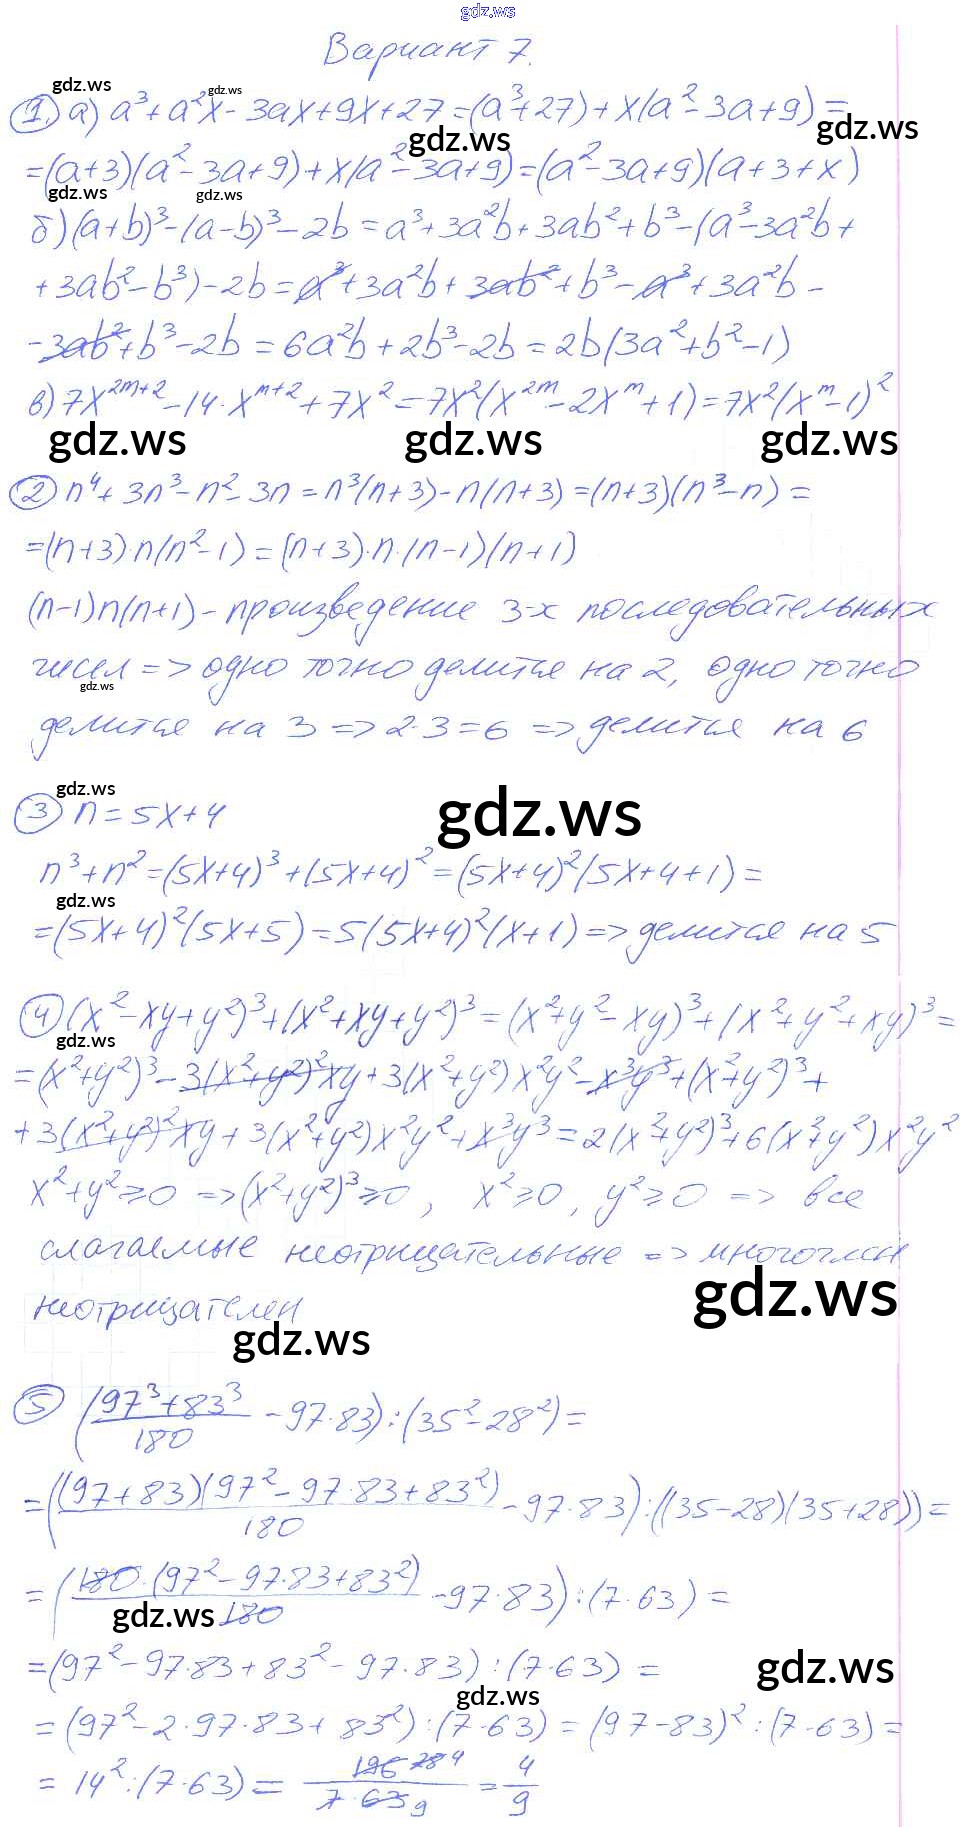 gdz.ws
Вариант 7.
gdz.ws gdz.ws
1. а) a³+a²x-3ax+9x+27=(a³+27)+x(a²-3a+9)=
gdz.ws gdz.ws
=(a+3)(a²-3a+9)+x(a²-3a+9)=(a²-3a+9)(a+3+x)
gdz.ws gdz.ws
б) (a+b)³-(a-b)³-2b=a³+3a²b+3ab²+b³-(a³-3a²b+
+3ab²-b³)-2b=a³+3a²b+3ab²+b³-a³+3a²b-
-3ab²+b³-2b=6a²b+2b³-2b=2b(3a²+b²-1)
в) 7x²ᵐ⁺²-14·xᵐ⁺²+7x²=7x²(x²ᵐ-2xᵐ+1)=7x²(xᵐ-1)²
gdz.ws gdz.ws gdz.ws
2 n⁴+3n³-n²-3n=n³(n+3)-n(n+3)=(n+3)(n³-n)=
=(n+3)·n(n²-1)=(n+3)·n·(n-1)(n+1)
(n-1)n(n+1)-произведение 3-х последовательных
чисел=>одно точно делится на 2, одно точно
gdz.ws
делится на 3=>2·3=6=>делится на 6
gdz.ws gdz.ws
3 n=5x+4
n³+n²=(5x+4)³+(5x+4)²=(5x+4)²(5x+4+1)=
gdz.ws
=(5x+4)²(5x+5)=5(5x+4)²(x+1)=>делится на 5
4 (x²-xy+y²)³+(x²+xy+y²)³=(x²+y²-xy)³+(x²+y²+xy)³=
gdz.ws
=(x²+y²)³-3(x²+y²)²xy+3(x²+y²)x²y²-x³y³+(x²+y²)³+
+3(x²+y²)²xy+3(x²+y²)x²y²+x³y³=2(x²+y²)³+6(x²+y²)x²y²
x²+y²⩾0=>(x²+y²)³⩾0, x²⩾0, y²⩾0=>все
слагаемые неотрицательные=>многочлен
gdz.ws
неотрицателен
gdz.ws
5 ((97³+83³)/180-97·83):(35²-28²)=
=((97+83)(97²-97·83+83²)/180-97·83):((35-28)(35+28))=
=(180·(97²-97·83+83²)/180-97·83):(7·63)=
gdz.ws
=(97²-97·83+83²-97·83):(7·63)=
gdz.ws gdz.ws
=(97²-2·97·83+83²):(7·63)=(97-83)²:(7·63)=
=14²:(7·63)=196 28 4/7·63 9=4/9